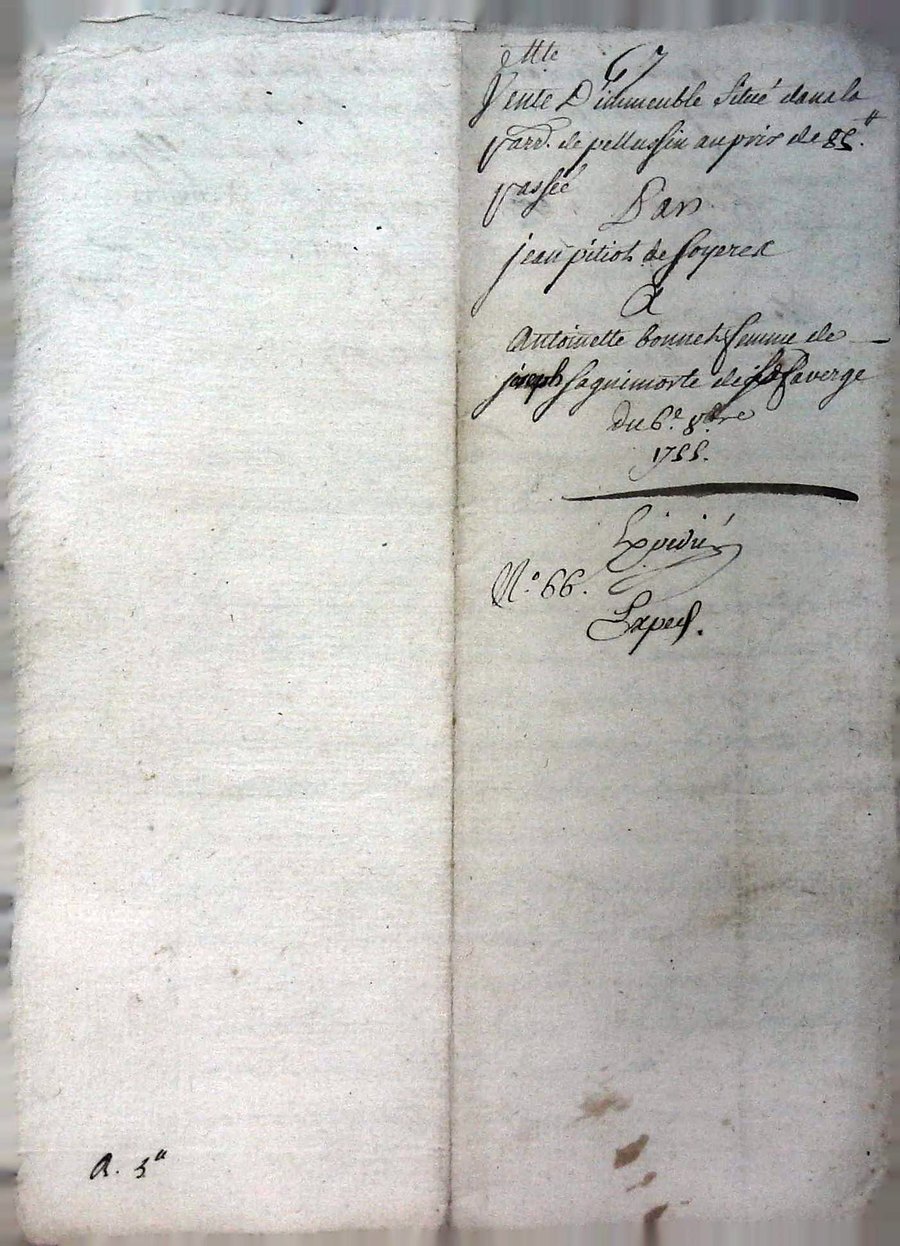 67
Vente D'immeuble Situé dans la
parr. de pellussin au prix de 85.ᵗᵗ
passée
Par
jean pitiot de
A
Antoinette bonnet femme de
joseph Saguimorte de
du 6.e 8bre
1755.
Expédié
N.° 66.
Exped.
A. 3ᵗᵗ